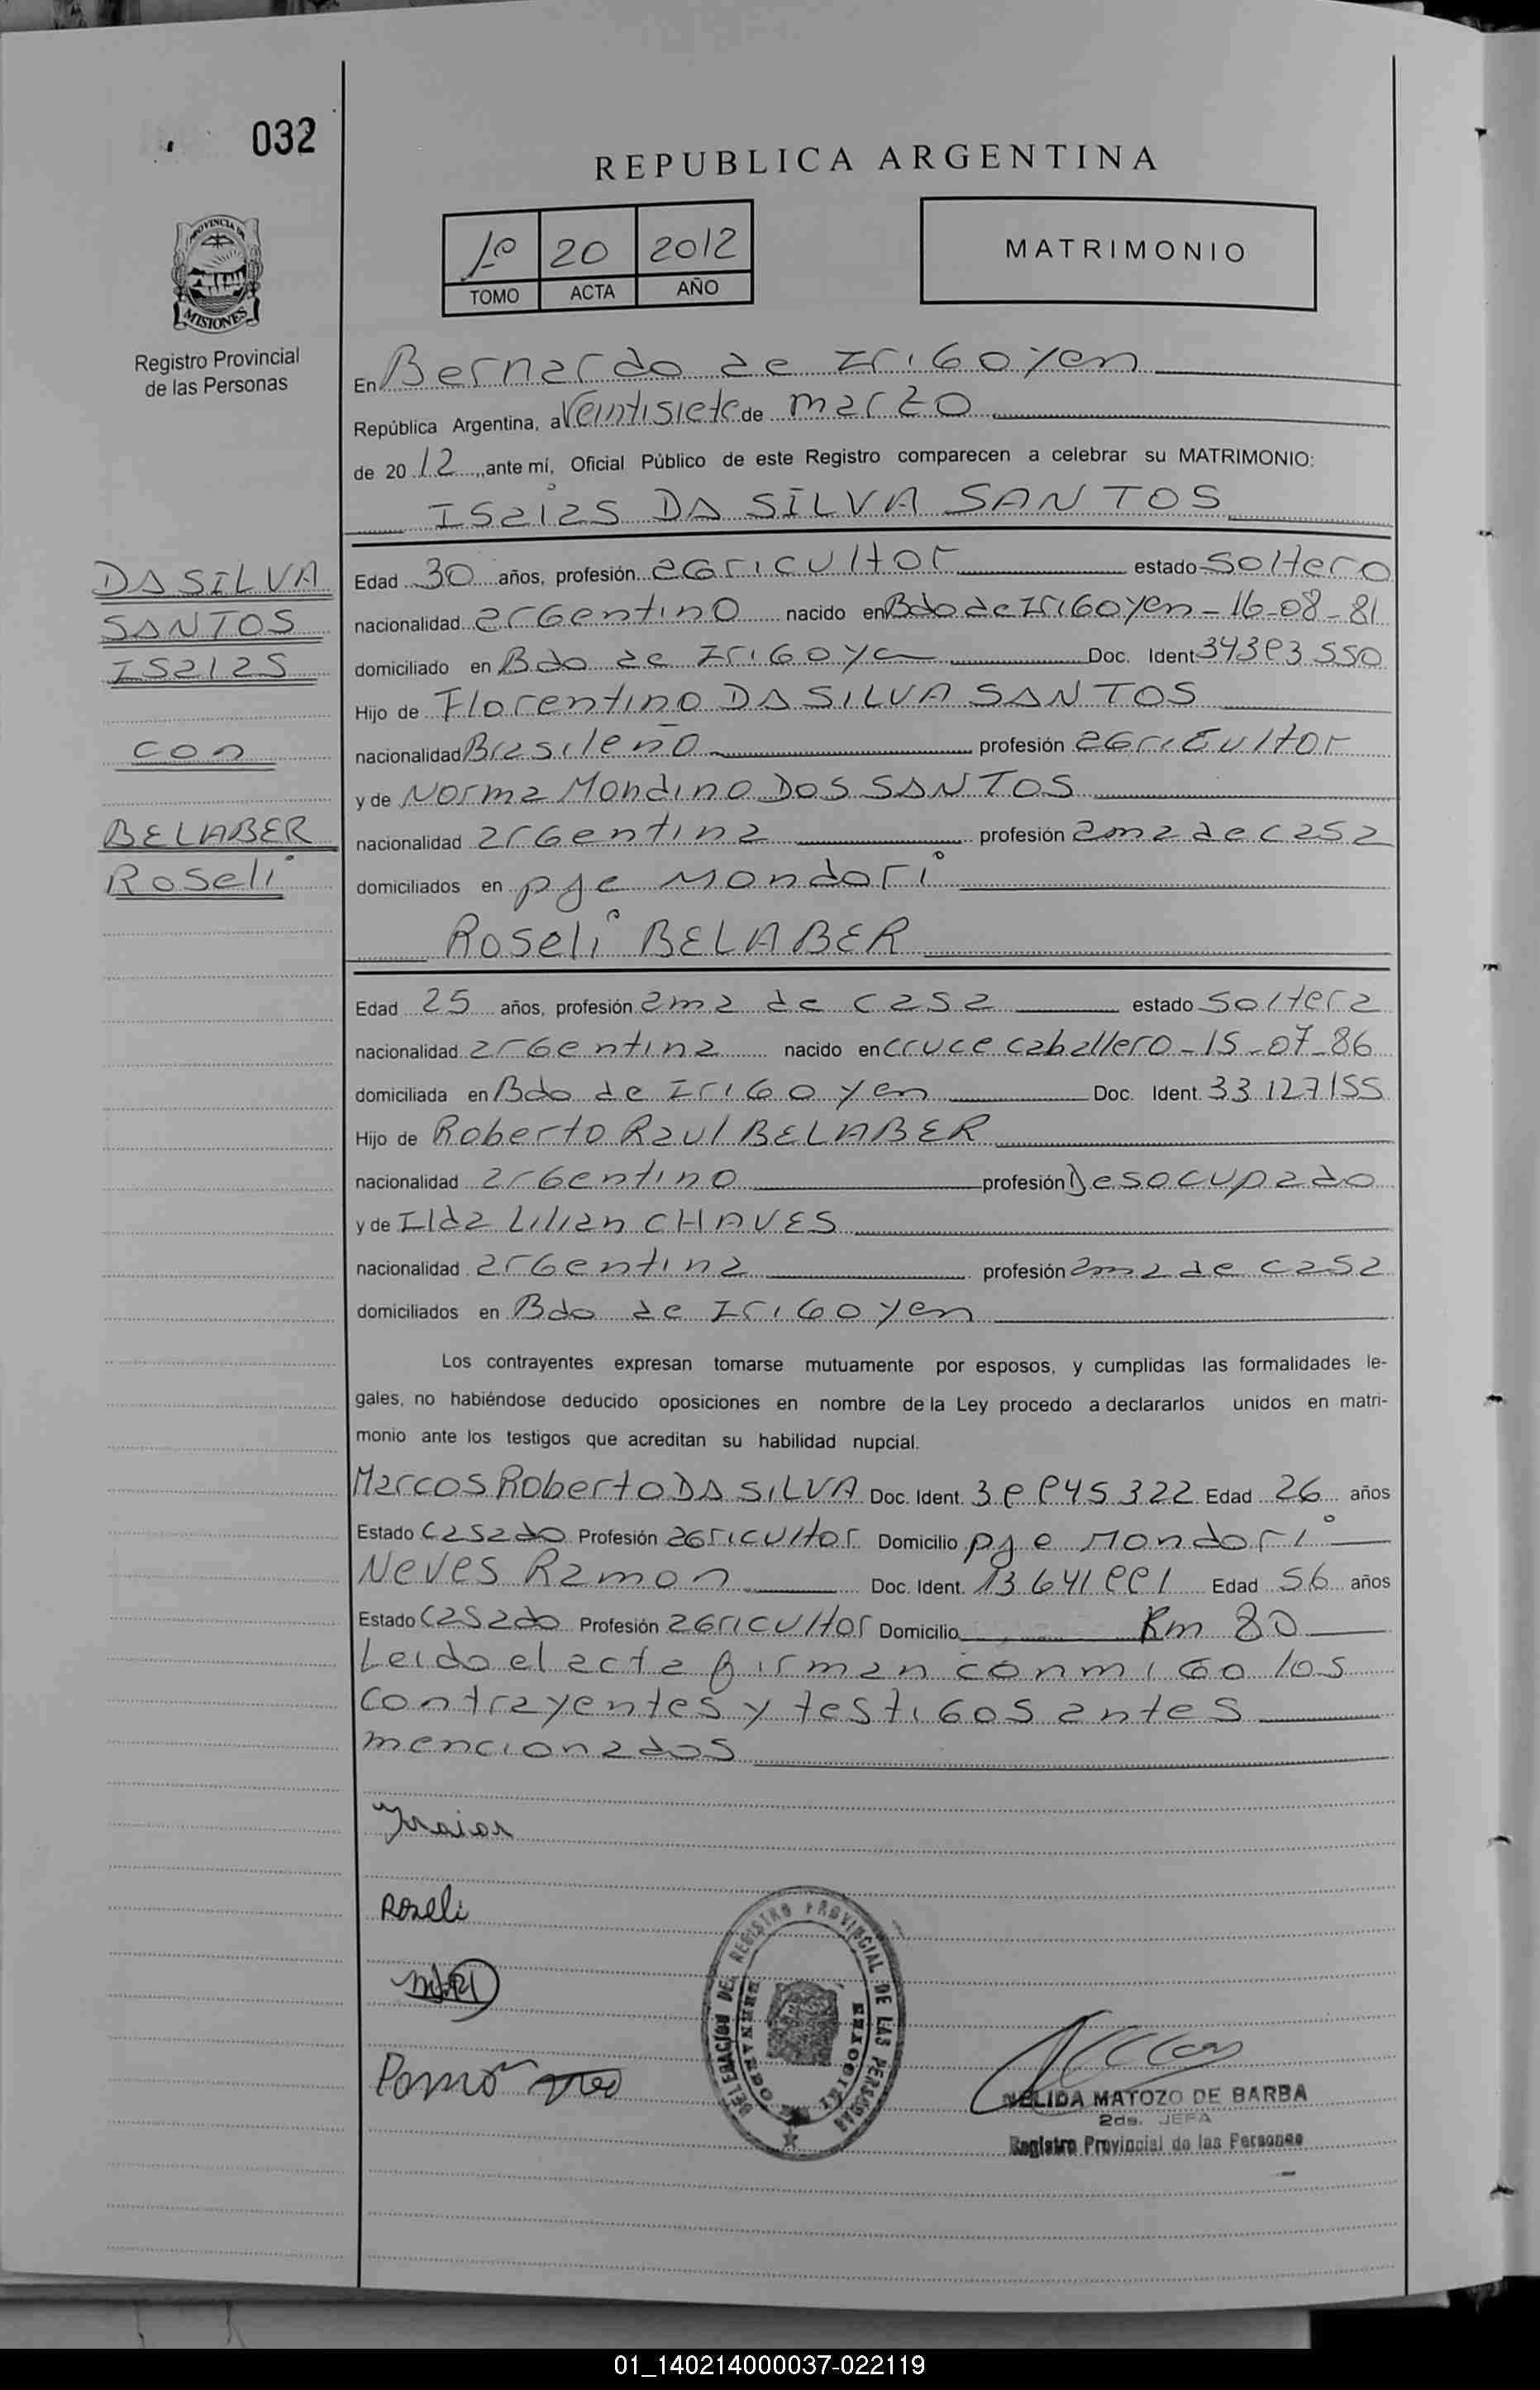 032
REPUBLICA ARGENTINA
1º 20 2012
TOMO ACTA AÑO
MATRIMONIO
PROVINCIA DE
MISIONES
Registro Provincial
de las Personas
En Bernardo de Irigoyen
República Argentina, a Veintisiete de marzo
de 20 12 ,, ante mí, Oficial Público de este Registro comparecen a celebrar su MATRIMONIO:
Isaias DA SILVA SANTOS
DA SILVA
SANTOS
Isaias
con
BELABER
Roseli
Edad 30 años, profesión agricultor estado Soltero
nacionalidad argentino nacido en Bdo de Irigoyen - 16-08-81
domiciliado en Bdo de Irigoyen Doc. Ident. 34383550
Hijo de Florentino DA SILVA SANTOS
nacionalidad Brasileño profesión agricultor
y de Norma Mondino DOS SANTOS
nacionalidad argentina profesión ama de casa
domiciliados en pje Mondori
Roseli BELABER
Edad 25 años, profesión ama de casa estado Soltera
nacionalidad argentina nacido en Cruce Caballero - 15-07-86
domiciliada en Bdo de Irigoyen Doc. Ident. 33127155
Hijo de Roberto Raul BELABER
nacionalidad argentino profesión Desocupado
y de Ilda Lilian CHAVES
nacionalidad argentina profesión ama de casa
domiciliados en Bdo de Irigoyen
Los contrayentes expresan tomarse mutuamente por esposos, y cumplidas las formalidades le-
gales, no habiéndose deducido oposiciones en nombre de la Ley procedo a declararlos unidos en matri-
monio ante los testigos que acreditan su habilidad nupcial.
Marcos Roberto DA SILVA Doc. Ident. 38845322 Edad 26 años
Estado Casado Profesión agricultor Domicilio pje Mondori
Neves Ramon Doc. Ident. 13641881 Edad 56 años
Estado Casado Profesión agricultor Domicilio Km 80
Leido el acta firman conmigo los
contrayentes y testigos antes
mencionados
Roseli
DELEGACION DEL REGISTRO PROVINCIAL DE LAS PERSONAS
BERNARDO DE IRIGOYEN
NELIDA MATOZO DE BARBA
2da. JEFA
Registro Provincial de las Personas
01_140214000037-022119